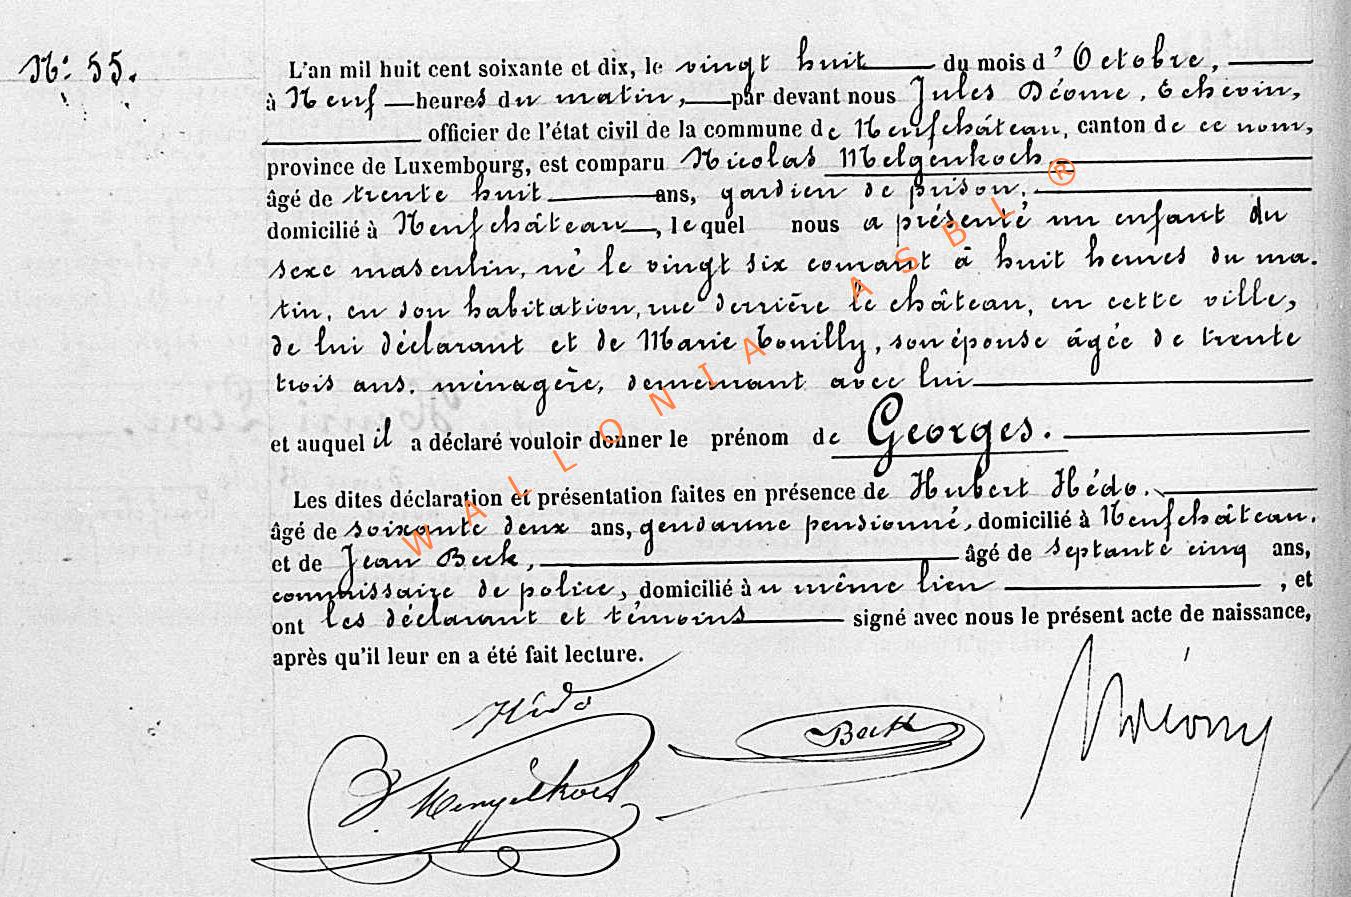 N° 55.
L'an mil huit cent soixante et dix, le vingt huit du mois d' Octobre,
à Neuf heures du matin, par devant nous Jules Déome, Echevin,
officier de l'état civil de la commune de Neufchâteau, canton de ce nom,
province de Luxembourg, est comparu Nicolas Melgenkoch
âgé de trente huit ans, gardien de prison,
domicilié à Neufchâteau, lequel nous a présenté un enfant du
sexe masculin, né le vingt six courant à huit heures du ma.
tin, en son habitation, rue derrière le château, en cette ville,
de lui déclarant et de Marie Touilly, son épouse âgée de trente
trois ans, ménagère, demeurant avec lui
et auquel il a déclaré vouloir donner le prénom de Georges.
Les dites déclaration et présentation faites en présence de Hubert Hédo.
âgé de soixante deux ans, gendarme pensionné, domicilié à Neufchâteau.
et de Jean Beck, âgé de septante cinq ans,
commissaire de police, domicilié au même lieu , et
ont les déclarant et témoins signé avec nous le présent acte de naissance,
après qu'il leur en a été fait lecture.
Hédo
Beck
Mengelkoch
Déome
WALLONIA ASBL ®